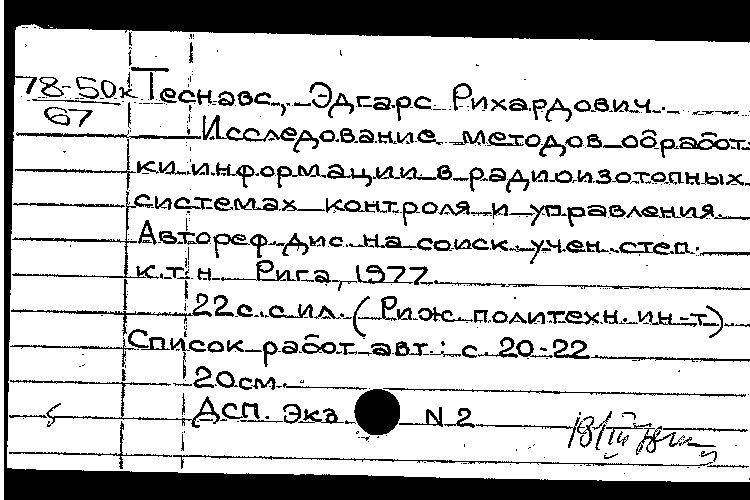 78-50к Теснавс, Эдгарс Рихардович.
67
Исследование методов обработ-
ки информации в радиоизотопных
системах контроля и управления.
Автореф. дис. на соиск. учен. степ.
к.т.н. Рига, 1977.
22 с. с ил. (Риж. политехн. ин-т)
Список работ авт.: с. 20-22
20 см.
ДСП. Экз. N 2